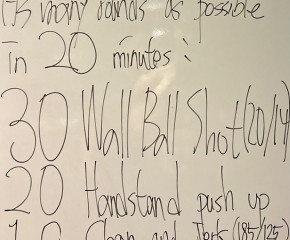 As many rounds as possible
in 20 minutes:
30 Wall Ball Shot (20/14)
20 Handstand push up
10 Clean and Jerk (185/125)